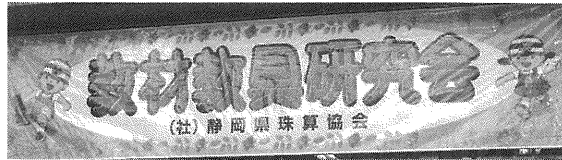 教材教具研究会
(社)静岡県珠算協会